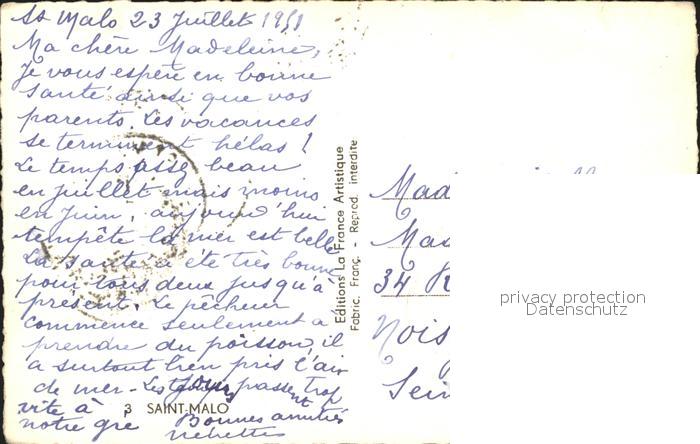 St Malo 23 Juillet 1951
Ma chère Madeleine,
Je vous espère en bonne
santé ainsi que vos
parents. Les vacances
se terminent hélas !
Le temps assez beau
en juillet mais moins
en juin, aujourd'hui
tempête la mer est belle
La santé a été très bonne
pour tous deux jusqu'à
présent. Le pêcheur
commence seulement à
prendre du poisson, il
a surtout bien pris l'air
de mer - Les jours passent trop
vite à
notre gré Bonnes amitiés
3 SAINT-MALO
Editions La France Artistique
Fabric. Franç. - Reprod. interdite
Mad
Mad
34 R
Nois
Sein
privacy protection
Datenschutz